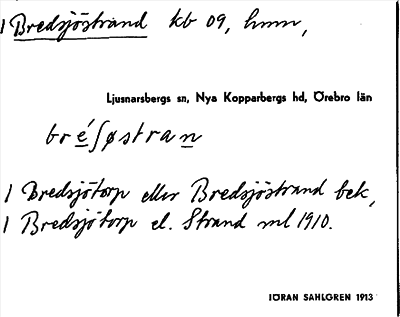 1 Bredsjöstrand kb 09, hmn,
Ljusnarsbergs sn, Nya Kopparbergs hd, Örebro län
bré̲ʃøstran̲
1 Bredsjötorp eller Bredsjöstrand bek,
1 Bredsjötorp el. Strand ml 1910.
JÖRAN SAHLGREN 1913